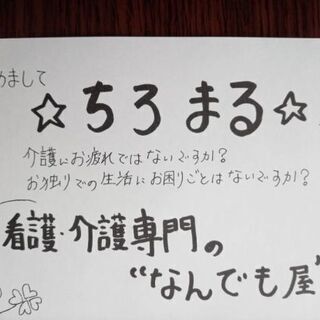 めまして
☆ちろまる☆
介護にお疲れではないですか?
お独りでの生活にお困りごとはないですか?
看護・介護専門の
"なんでも屋"